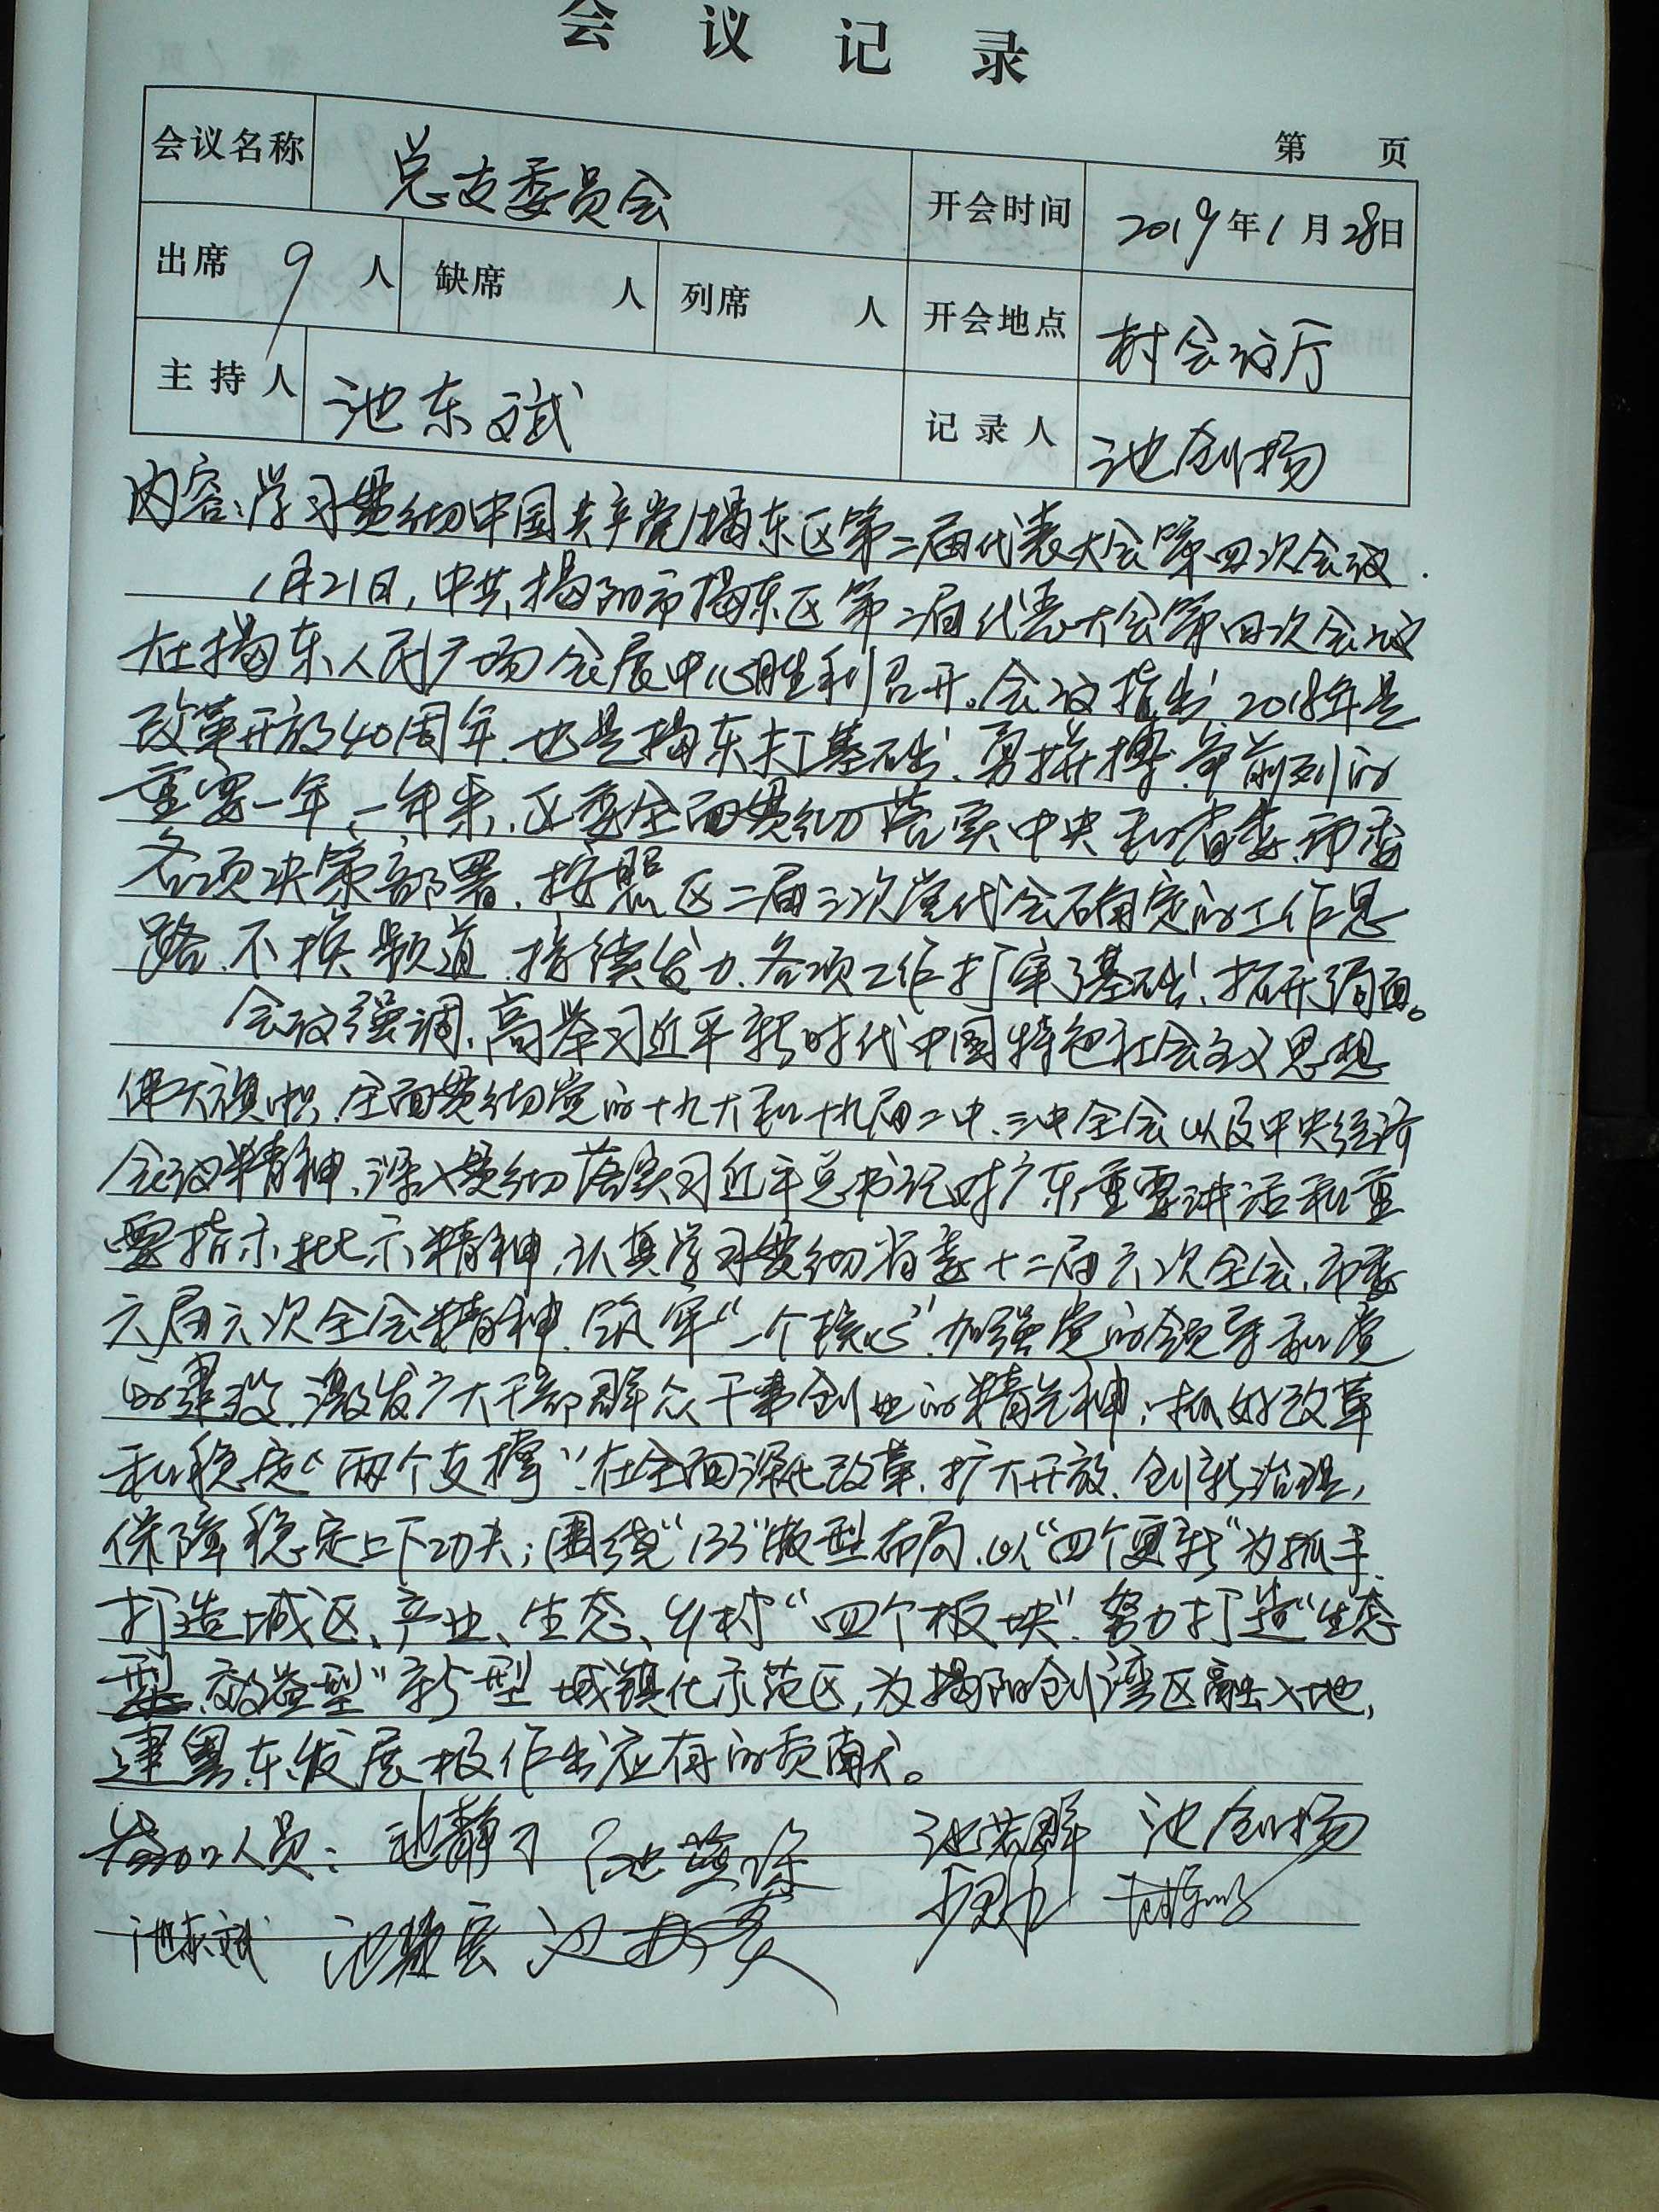 会议记录
第 页
会议名称 总支委员会 开会时间 2019年1月28日
出席 9 人 缺席 人 列席 人 开会地点 村会议厅
主持人 池东斌 记录人 池创扬
内容:学习贯彻中国共产党揭东区第二届代表大会第四次会议.
1月21日,中共揭阳市揭东区第二届代表大会第四次会议
在揭东人民广场会展中心胜利召开。会议指出,2018年是
改革开放40周年,也是揭东打基础、勇拼搏、争前列的
重要一年,一年来,区委全面贯彻落实中央和省委、市委
各项决策部署,按照区二届三次党代会确定的工作思
路,不换频道,持续发力,各项工作打牢了基础、拓开了局面。
会议强调,高举习近平新时代中国特色社会主义思想
伟大旗帜,全面贯彻党的十九大和十九届二中、三中全会以及中央经济
会议精神,深入贯彻落实习近平总书记对广东重要讲话和重
要指示批示精神,认真学习贯彻省委十二届六次全会、市委
六届六次全会精神,筑牢“一个核心”,加强党的领导和党
的建设,激发广大干部群众干事创业的精气神;抓好改革
和稳定“两个支撑”,在全面深化改革,扩大开放,创新治理,
保障稳定上下功夫;围绕“133”散型布局,以“四个更新”为抓手,
打造城区、产业、生态、乡村“四个板块”,努力打造“生态
型、效益型”新型城镇化示范区,为揭阳创湾区融入地,
建粤东发展极作出应有的贡献。
参加人员: 池静 池 池若群 池创扬
池东斌 池